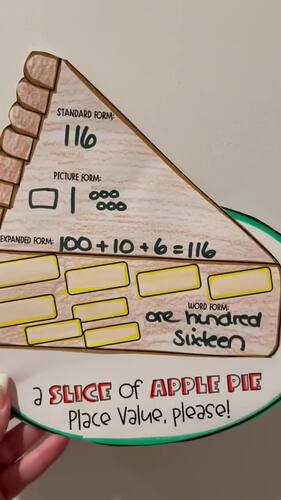 STANDARD FORM:
116
PICTURE FORM:
EXPANDED FORM: 100 + 10 + 6 = 116
WORD FORM:
one hundred
sixteen
a SLICE of APPLE PIE
Place Value, please!